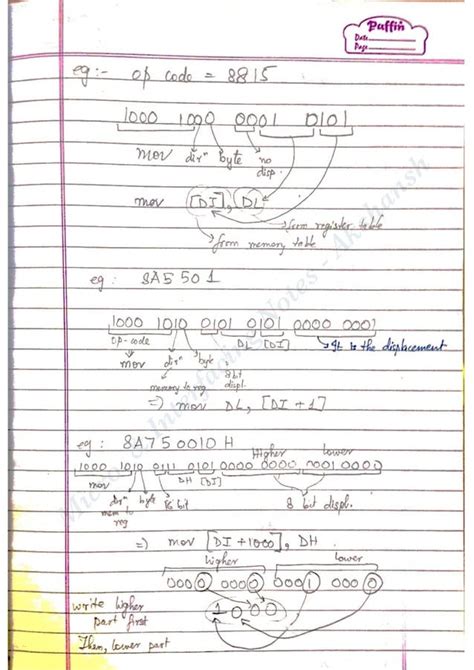 Puffin
Date
Page
eg:- op code = 8815
1000 1000 0001 0101
mov dirⁿ byte no
disp.
mov [DI], DL
from register table
from memory table
eg: 8A5 501
1000 1010 0101 0101 0000 0001
op-code DL [DI] It is the displacement
mov dirⁿ byte 8 bit
memory to reg displ.
=) mov DL, [DI + 1]
eg: 8A750010H
Higher lower
1000 1010 0111 0101 0000 0000 0001 0000
mov DH [DI]
dirⁿ byte 16 bit 8 bit displ.
mem to
reg
=) mov [DI +1000], DH
higher lower
0000 0000 0001 0000
write higher 1000
part first
Then, lower part
Micro & Interfacing Notes - Akshansh